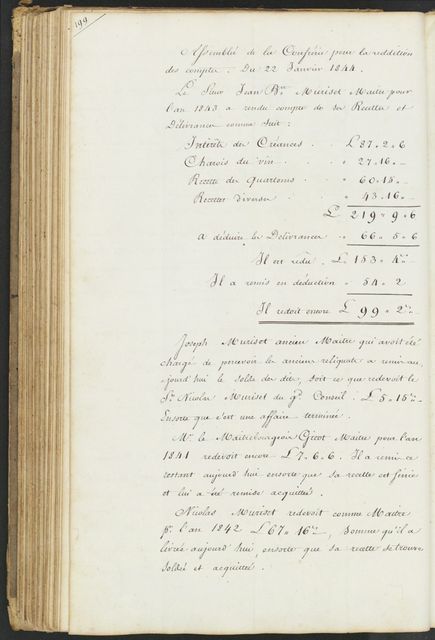 199
Assemblé de la Confrérie pour la reddition
des comptes. Du 22 Janvier 1844.
Le Sieur Jean Bte Murisot Maitre pour
l'an 1843 a rendu compte de sa Recette et
Délivrance comme suit :
Intérêts des Créances . . £ 87 " 2 " 6
Charois du vin . . " 27 " 16 "
Recette des Quarterons . . " 60 " 15 "
Recettes diverses . . " 43 " 16 "
£ 219 " 9 " 6
a déduire la Délivrance " 66 " 5 " 6
Il est redu . £ 153 " 4 "
Il a remis en déduction " 54 " 2
Il redoit encore £ 99 " 2 "
Joseph Murisot ancien Maitre qui avoit été
chargé de percevoir les anciens reliquats a remis au-
jourd'hui le solde des dits, soit ce que redevoit le
Sr Nicolas Murisot du gd Conseil . £ 5 " 15 "
Ensorte que c'est une affaire terminée .
Mr. le Maitrebourgeois Gicot Maitre pour l'an
1841 redevoit encore £ 7 " 6 " 6 . Il a remis ce
restant aujourd'hui ensorte que sa recette est finie
et lui a été remise acquittée .
Nicolas Murisot redevoit comme Maitre
pr l'an 1842 £ 67 " 16 " , Somme qu'il a
livrée aujourd'hui, ensorte que sa recette se trouve
soldée et acquittée .